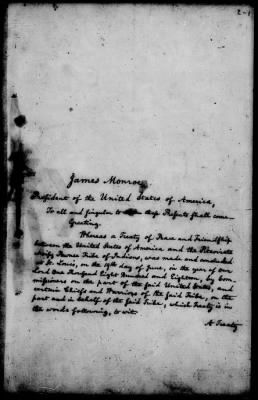 2-1
James Monroe,
President of the United States of America,
To all and singular to whom these Presents shall come
Greeting.
Whereas a Treaty of Peace and Friendship
between the United States of America and the
Pawnee Tribe of Indians, was made and concluded
at St. Louis, on the day of June, in the year of our
Lord One thousand Eight Hundred and Eighteen, by Com
missioners on the part of the said United States, and
certain Chiefs and Warriors of the said Tribe, on the
part and in behalf of the said Tribe, which Treaty is in
the words following, to wit.
A Treaty